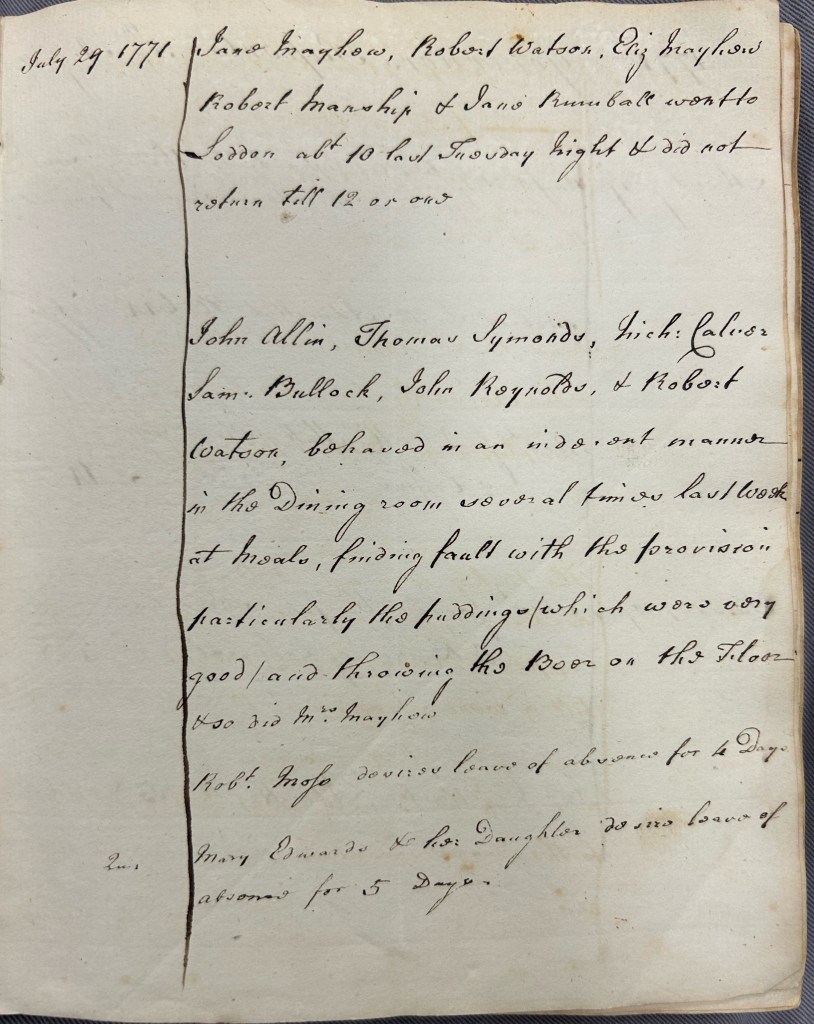 July 29 1771 Jane Mayhew, Robert Watson, Eliz Mayhew
Robert Manship & Jane Rumball went to
Loddon abt 10 last Tuesday Night & did not
return till 12 or one
John Allin, Thomas Symonds, Nich: Calver
Sam: Bullock, John Reynolds, & Robert
Watson, behaved in an indecent manner
in the Dining room several times last Week
at Meals, finding fault with the provision
particularly the puddings/which were very
good/and throwing the Beer on the Floor
& so did Mrs. Mayhew
Robt. Moss desires leave of absence for 4 Days
Mary Edwards & her Daughter desire leave of
absence for 5 Days.